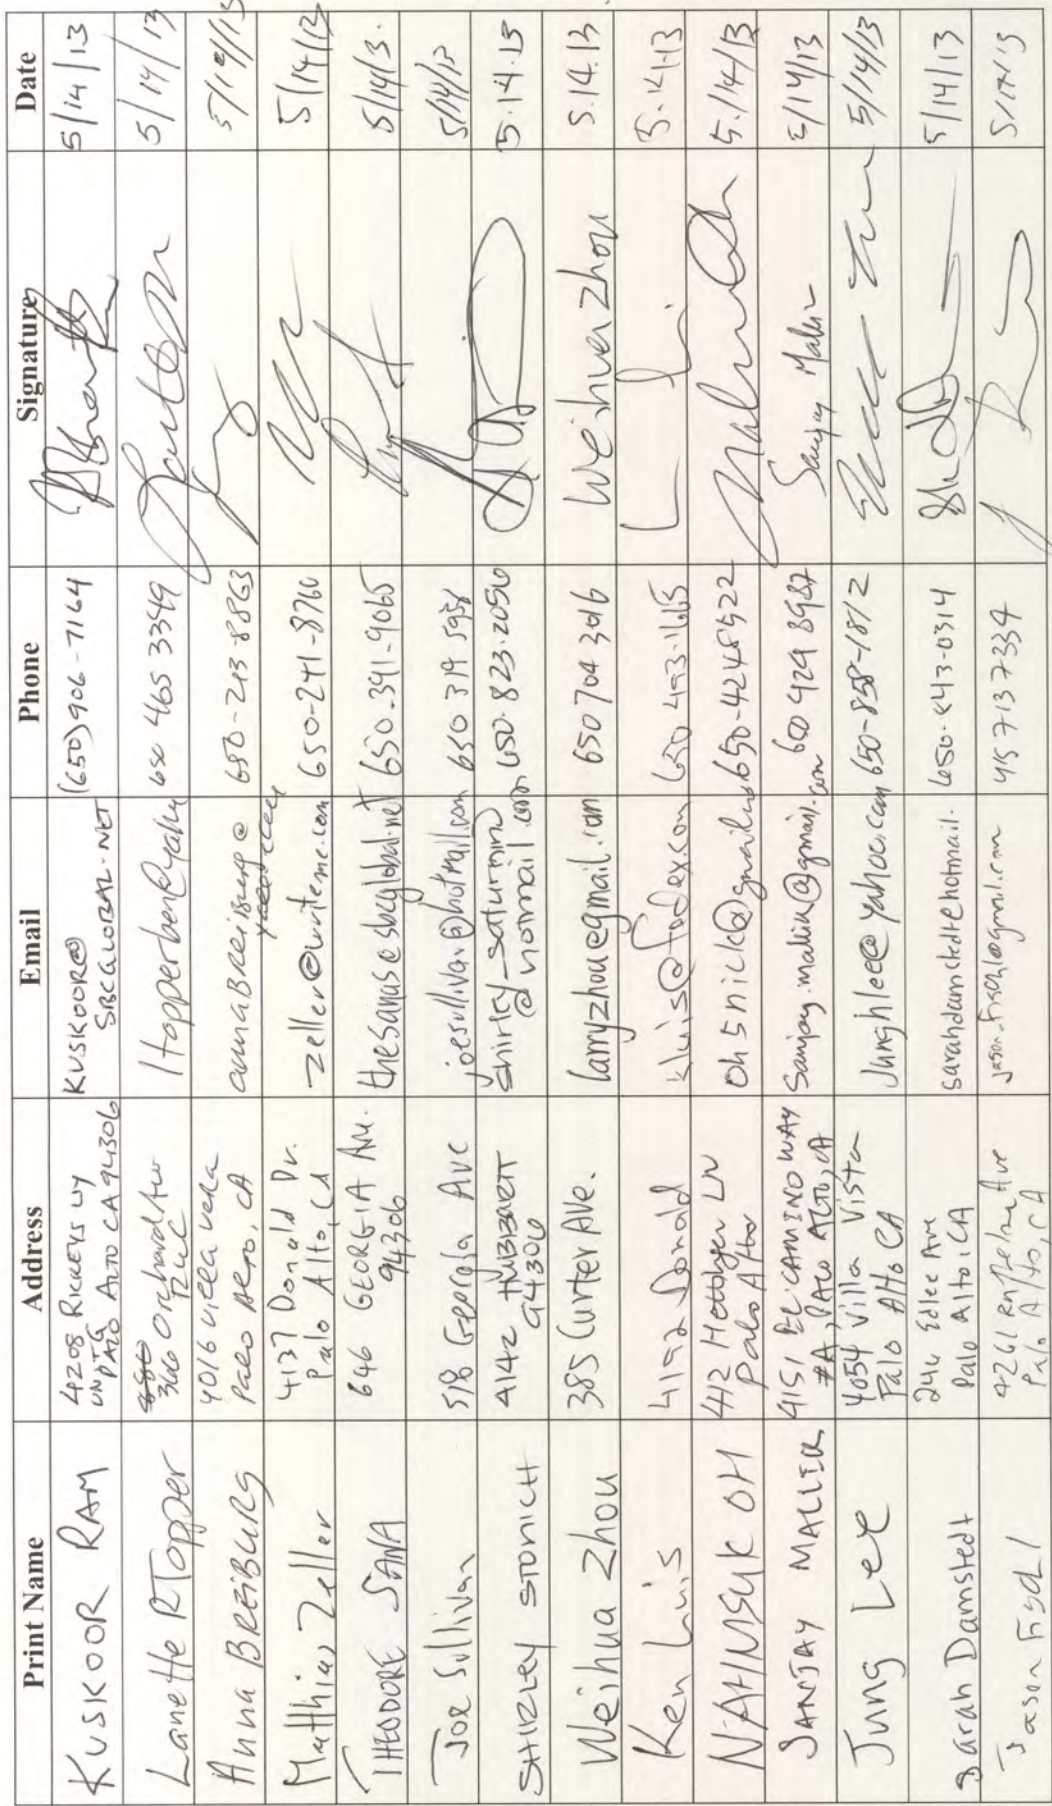 Print Name Address Email Phone Signature Date
KUSKOOR RAM 4208 RICKEYS WY UNIT G PALO ALTO CA 94306 KUSKOOR@SBCGLOBAL.NET (650) 906-7164 5/14/13
Lanette R Topper 366 Orchard Ave ltopperben@yahu 650 465 3349 5/14/13
Anna BREIBURG 4016 Villa Vera Palo Alto, CA annaBREIBURG@ 650-213-8863 5/14/13
Matthias Zeller 4137 Donald Dr. Palo Alto, CA zeller@writeme.com 650-241-8760 5/14/13
THEODORE SANA 646 GEORGIA Ave. 94306 thesanas@sbcglobal.net 650-391-9065 5/14/13.
Joe Sullivan 518 Georgia Ave joesullivan@hotmail.com 650 319 5958 5/14/13
SHIRLEY STONICH 4142 HUBBARTT 94306 shirley_saturnin@hotmail.com 650-823-2056 5.14.13
Weihua Zhou 385 Curter Ave. larryzhou@gmail.com 650 704 3016 Weihua Zhou 5.14.13
Ken Luis 4192 Donald kluis@fodex.com 650 493-1665 5.14.13
NAHMSUK OH 412 Palo Alto oh5nick@gmail.com 650-4248522 5/14/13
SANJAY MALLIK 4151 EL CAMINO WAY #A, PALO ALTO, CA Sanjay.mallik@gmail.com 650 424 8987 5/14/13
Jung Lee 4054 Villa Vista Palo Alto CA Junghlee@yahoo.com 650-858-1812 5/14/13
Sarah Damstedt 246 Edlee Ave Palo Alto, CA sarahdamstedt@hotmail. 650-843-0314 5/14/13
Jason Fischl 4261 Ave Palo Alto, CA jason.fischl@gmail.com 415 713 7334 5/14/13